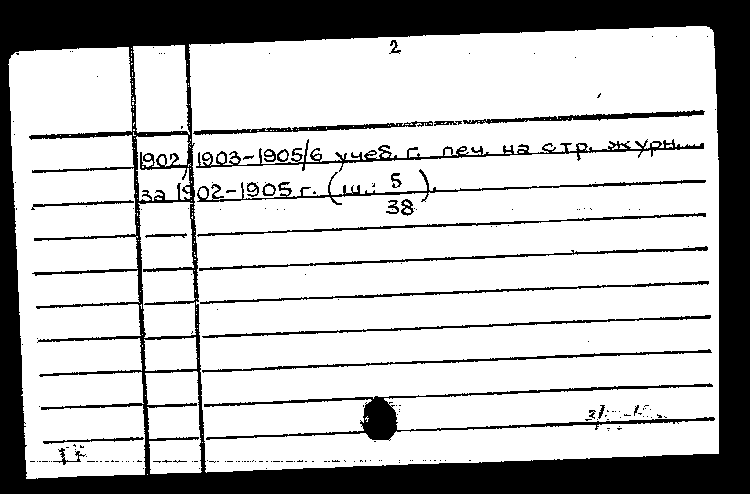 2
1902/1903-1905/6 учеб. г. печ. на стр. журн.
за 1902-1905 г. (ш.: 5/38).